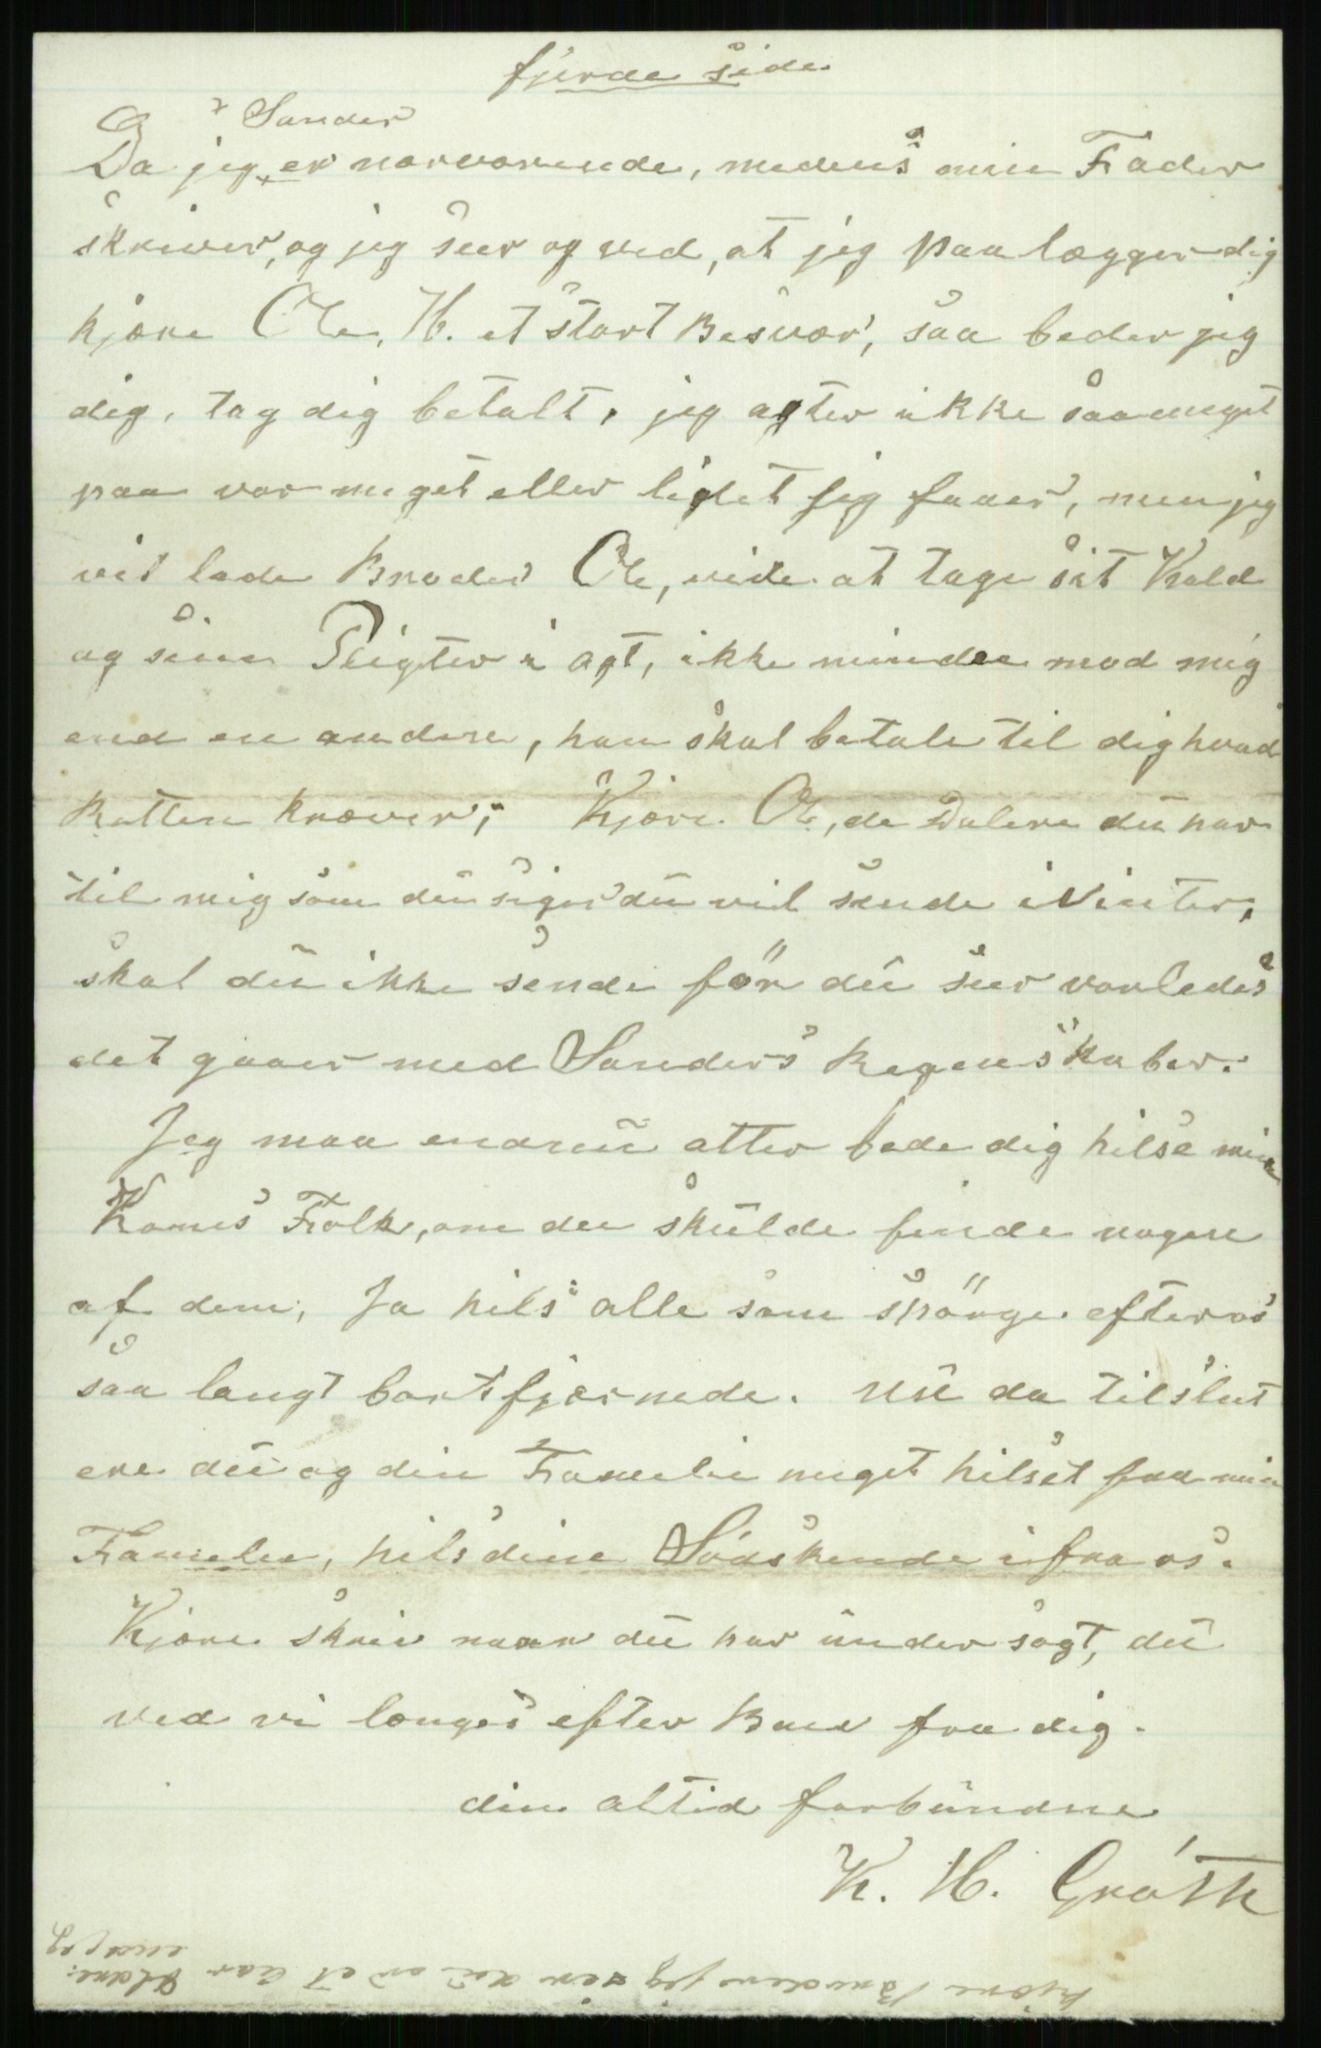 fjerde side.
Sander
Da jeg er nærværende, medens min Fader
skriver, og jeg seer og ved, at jeg paalægger dig
kjære Ole, H. et stort Besvær, saa beder jeg
dig, tag dig betalt, jeg agter ikke saa meget
paa vor meget eller lidet jeg faaer, men jeg
vil lade Broder Ole, vide at tage sit Kald
og sine Pligter i agt, ikke mindre mod mig
end en anden, han skal betale til dig hvad
Retten kræver; Kjære Ole, de Dalere du har
til mig som du siger du vil sende i Vinter,
skal du ikke sende för du seer vorledes
det gaaer med Sanders Regenskaber.
Jeg maa endnu atter bede dig hilse min
Kones Folk, om du skulde finde nogen
af dem, Ja hils alle som spörge efter os
saa langt bortfjærnede. Nu da tilslut
ere du og din Familie meget hilset fra min
Familie, hils dine Södskende ifra os.
Kjære skriv naar du har undersøgt, du
ved vi længes efter Brev fra dig.
din altid forbundne
K. H. Gróth
kjære Broder jeg er et Aar Ældre
end jeg